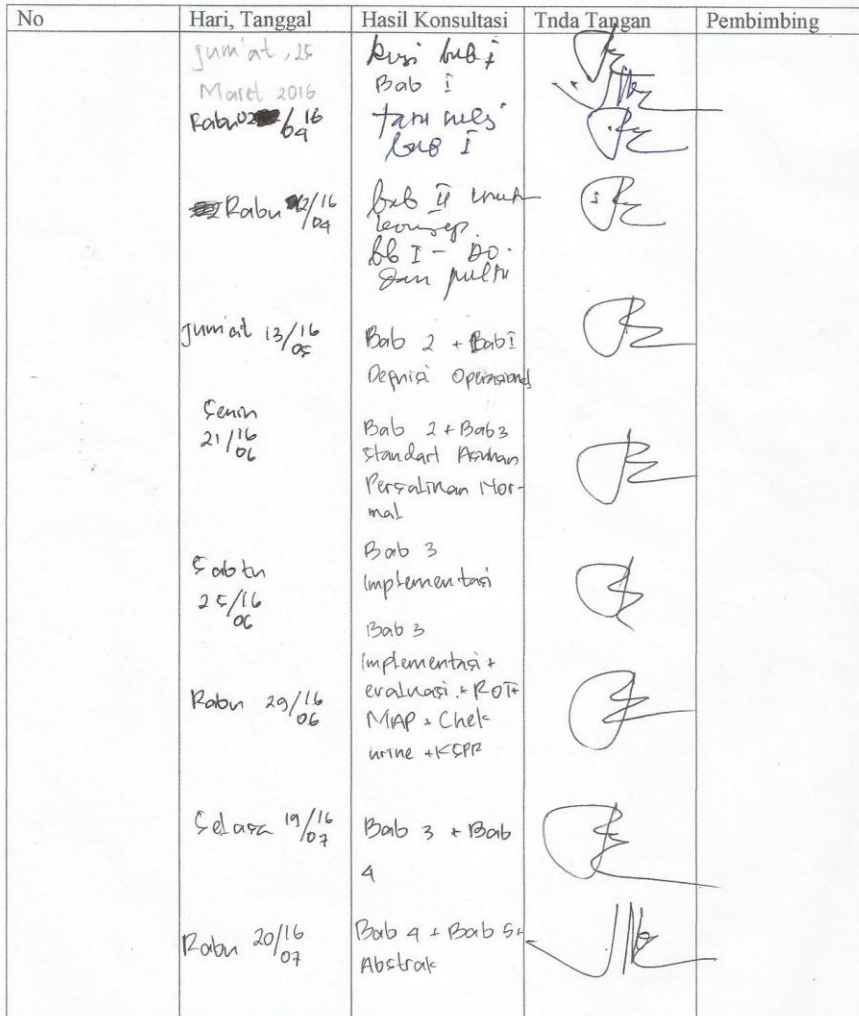 No Hari, Tanggal Hasil Konsultasi Tnda Tangan Pembimbing
Jum'at, 25
Maret 2016
bab I
Bab I
Rabu 16/04
bab I
Rabu 2/16/04
bab II
konsep.
bb I - DO.
dan
Jum'at 13/16/05
Bab 2 + Bab I
Definisi Operasional
Senin
21/16/06
Bab 2 + Bab 3
Standart Asuhan
Persalinan Nor-
mal
Sabtu
25/16/06
Bab 3
Implementasi
Bab 3
Rabu 29/16/06
Implementasi +
evaluasi + ROT +
MAP + Chek
urine + KSPR
Selasa 19/16/07
Bab 3 + Bab
4
Rabu 20/16/07
Bab 4 + Bab 5 +
Abstrak